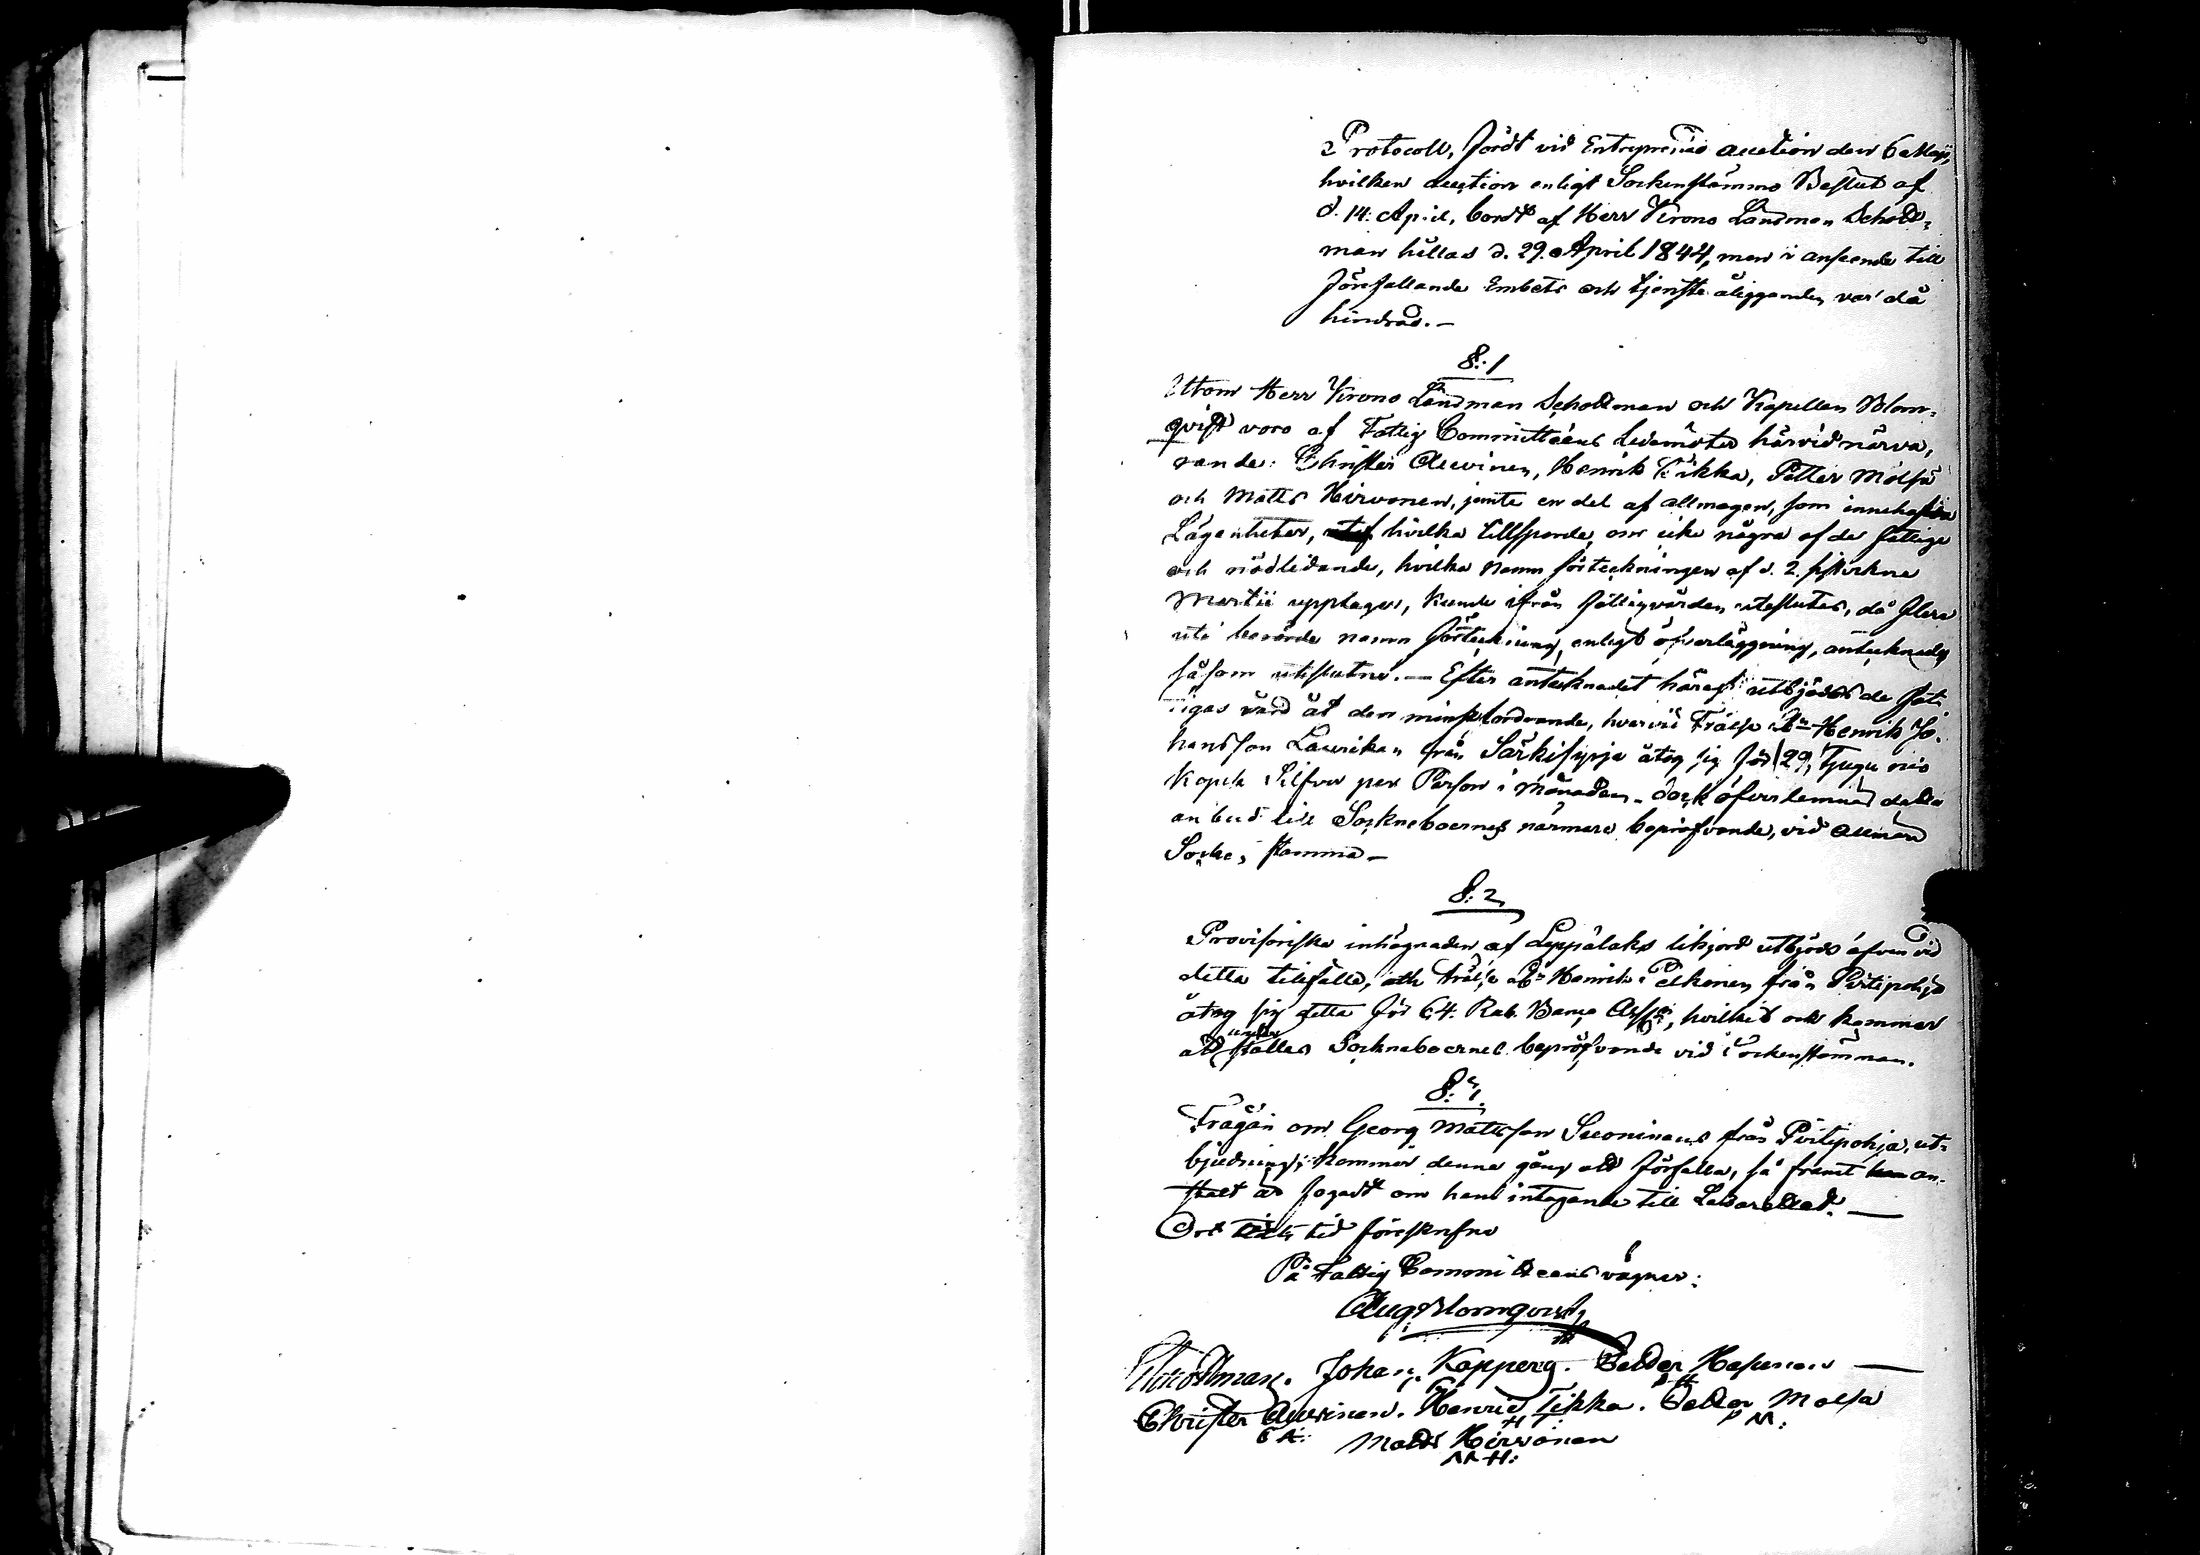 Protocoll, fördt vid Entreprenad auction den 6 Maji,
hvilken auction enligt Sockenstämmo Beslut af
d. 14. April, bordt af Herr Krono Länsman Schodt-
man hållas d. 29. April 1844, men i anseende till
förefallande Embets och tjenste åligganden var då
hindrad. –
§: 1
Utom Herr Krono Länsman Schodtman och Kapellan Blom-
qvist voro af Fattig Committéens Ledamöter härvid närva-
rande: Christer Auvinen, Henrik Tikka, Petter Molsa
och Matts Hirvonen, jemte en del af allmogen, som innehafva
Lägenheter, hvilka tillspordes, om icke några af de fattiga
och nödlidande, hvilka namn förteckningen af d. 2. sistledne
Martii upptager, kunde ifrån fattigvården uteslutas, då flera
uti berörde namn förteckning, enligt öfverläggning, antecknades
såsom uteslutne. – Efter antecknadet häraf utbjöds de fat-
tigas vård åt den minstfordrande, hvarvid Frälse Bn Henrik Jo-
hansson Laurikan från Särkisyrja åtog sig för 29, Tjugu nio
Kopek Silfver per Person i Månaden, dock öfverlemnad detta
anbud till Sockneboernes närmare bepröfvande, vid Allmän
Socken stämma –
§: 2
Provisoriska inhägnaden af Leppälaks likjord utbjöds äfven vid
detta tillfälle, och Frälse Bn Henrik Pelkonen från Pitipohja
åtog sig detta för 64. Rub. Banco Ass:, hvilket och kommer
att under ställas Sockneboernes bepröfvande vid Sockenstämman.
§: 3.
Frågan om Georg Mattsson Suoninens från Pitipohja, ut-
bjudning, kommer denna gång att förfalla, så framt an-
stalt är fogadt om hans intagande till Lazarettet. –
Ort och tid föreskrefne
På Fattig Committeens vägnar:
Aug Blomqvist
Schodtman. Johan Kopperg. Petter Hasunen –
PH
Christer Auvinen. Henric Tikka. Petter Molsa
CA: HT PM:
Matts Hirvonen
MH: